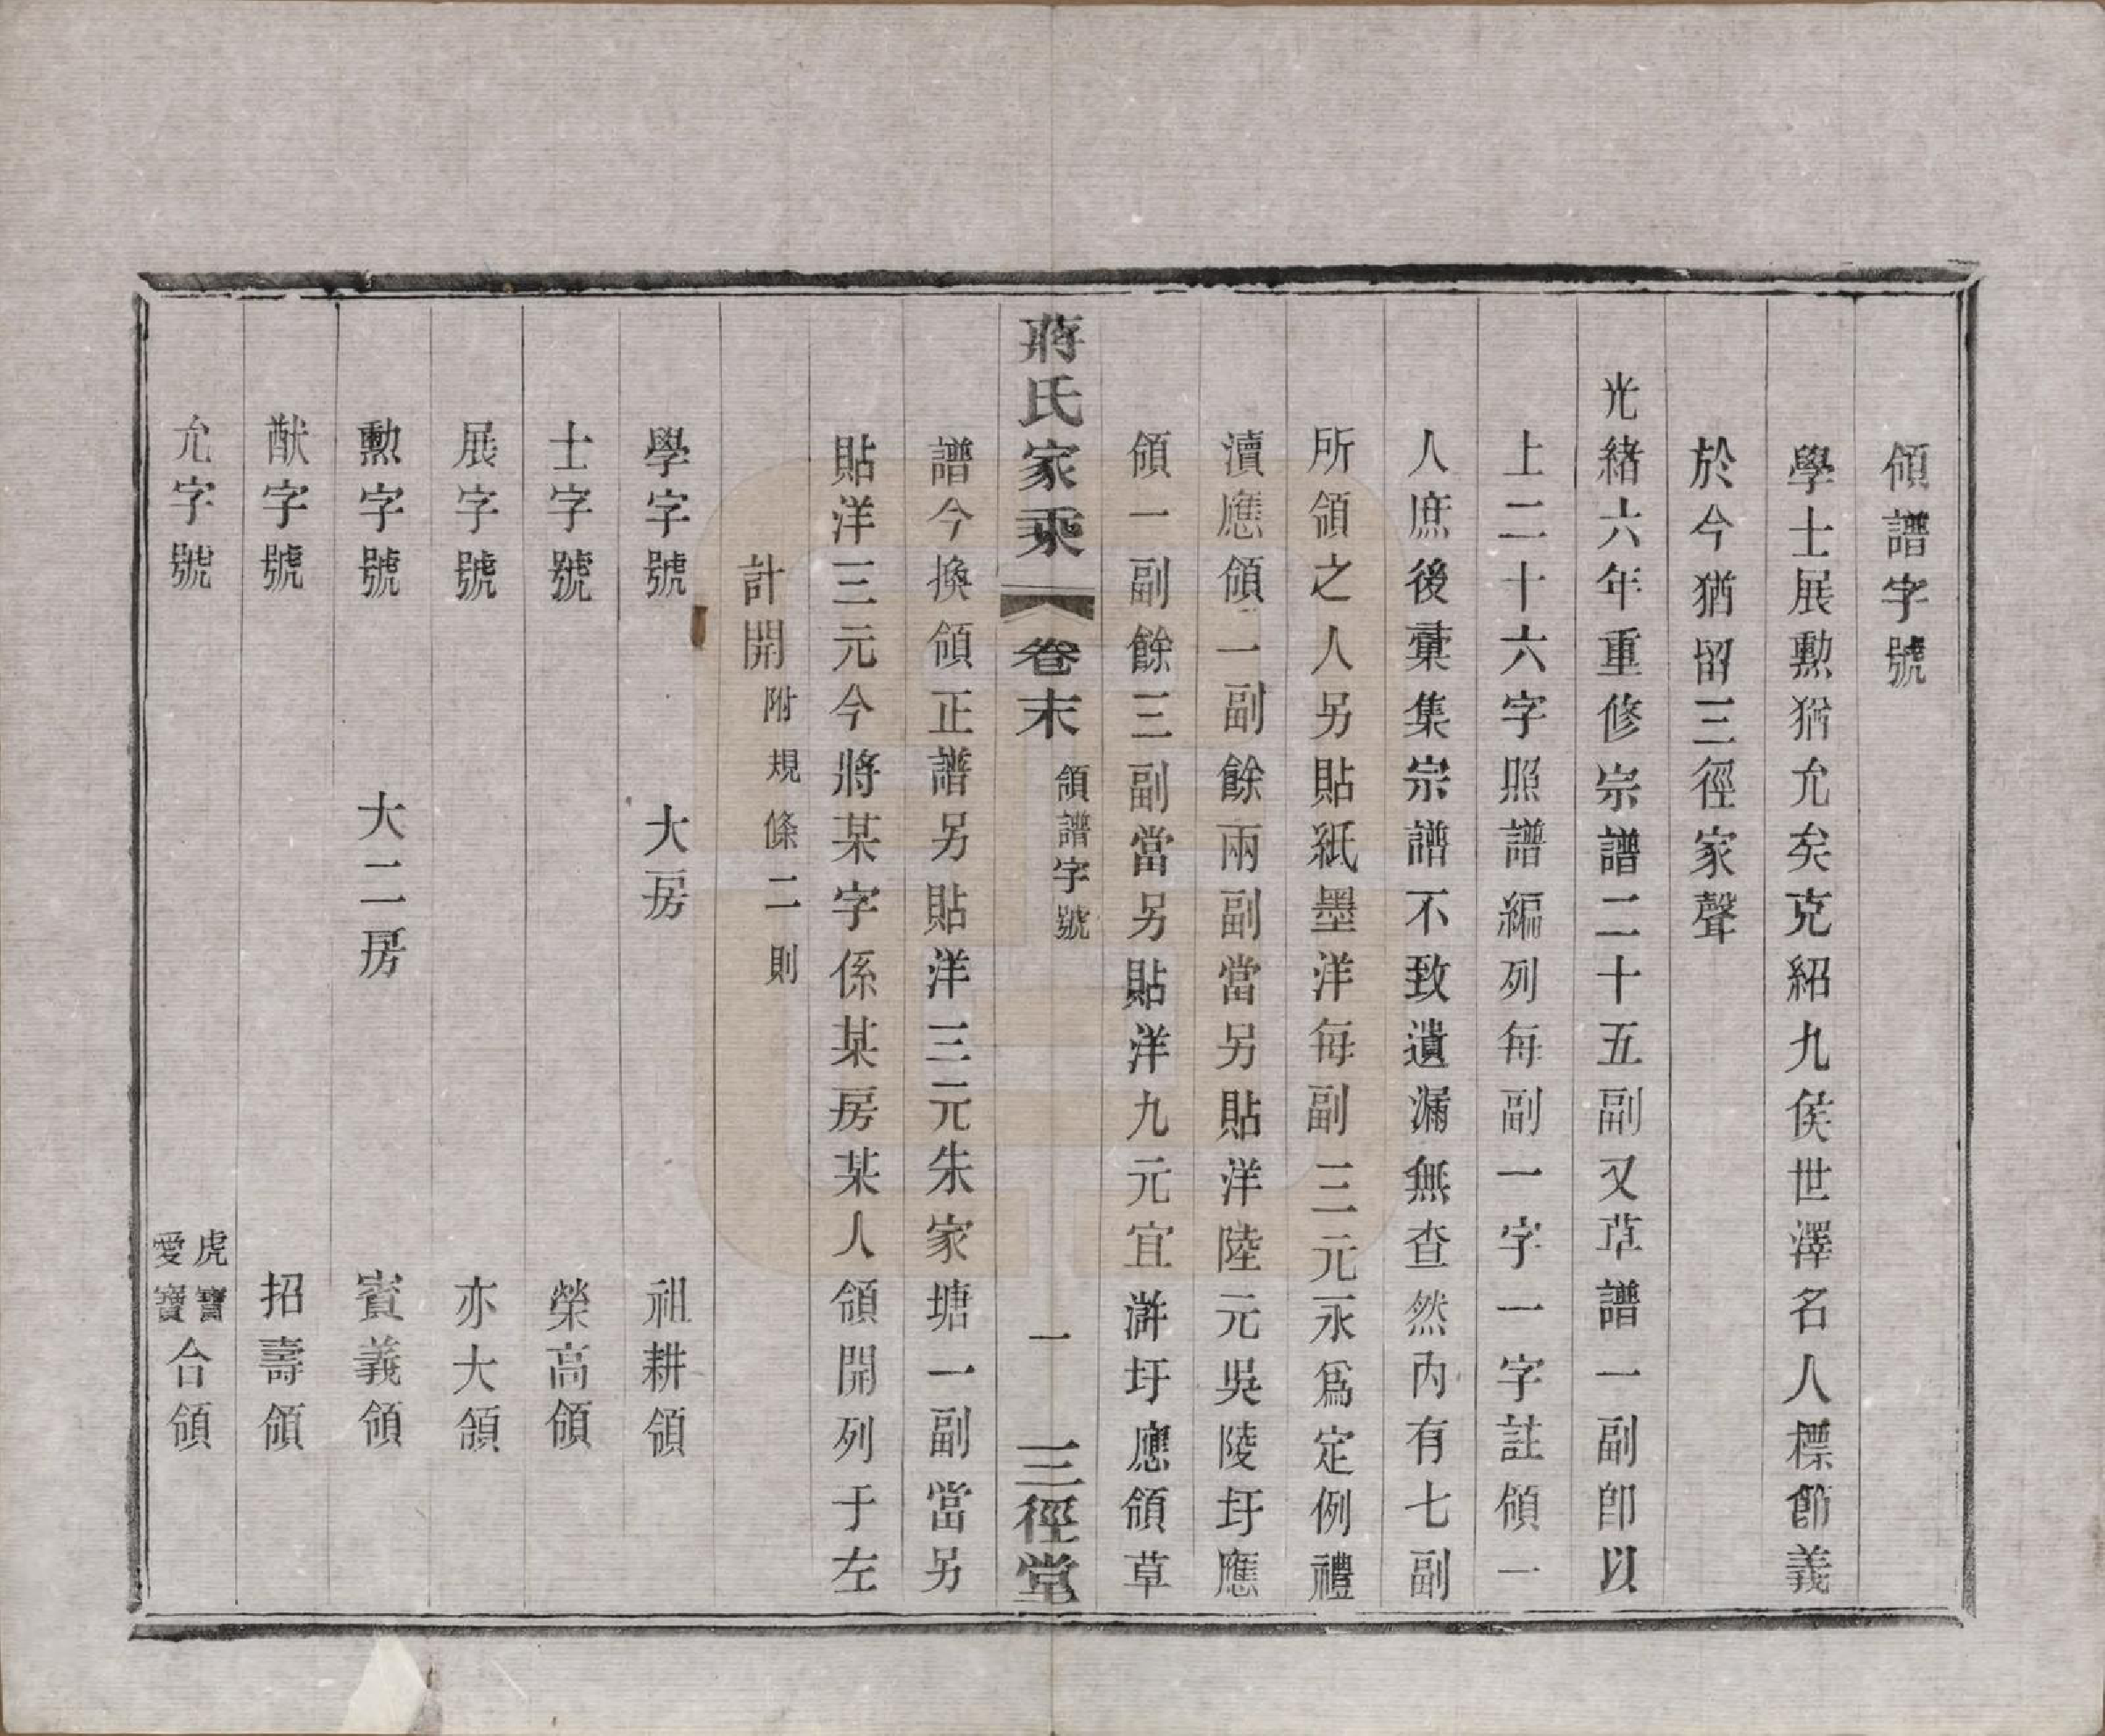 領譜字號
學士展勲猶允矣克紹九侯世澤名人標節義
於今猶留三徑家聲
光緒六年重修宗譜二十五副又草譜一副卽以
上二十六字照譜編列每副一字一字註領一
人庶後彚集宗譜不致遺漏無查然內有七副
所領之人另貼紙墨洋每副三元永爲定例禮
瀆應領一副餘兩副當另貼洋陸元吳陵圩應
領一副餘三副當另貼洋九元宜滸圩應領草
蔣氏家乘 卷末 領譜字號 一 三徑堂
譜今換領正譜另貼洋三元朱家塘一副當另
貼洋三元今將某字係某房某人領開列于左
計開 附規條二則
學字號 大房 祖耕領
士字號 榮高領
展字號 亦大領
勲字號 大二房 賓義領
猷字號 招壽領
允字號 虎寶 愛寶 合領